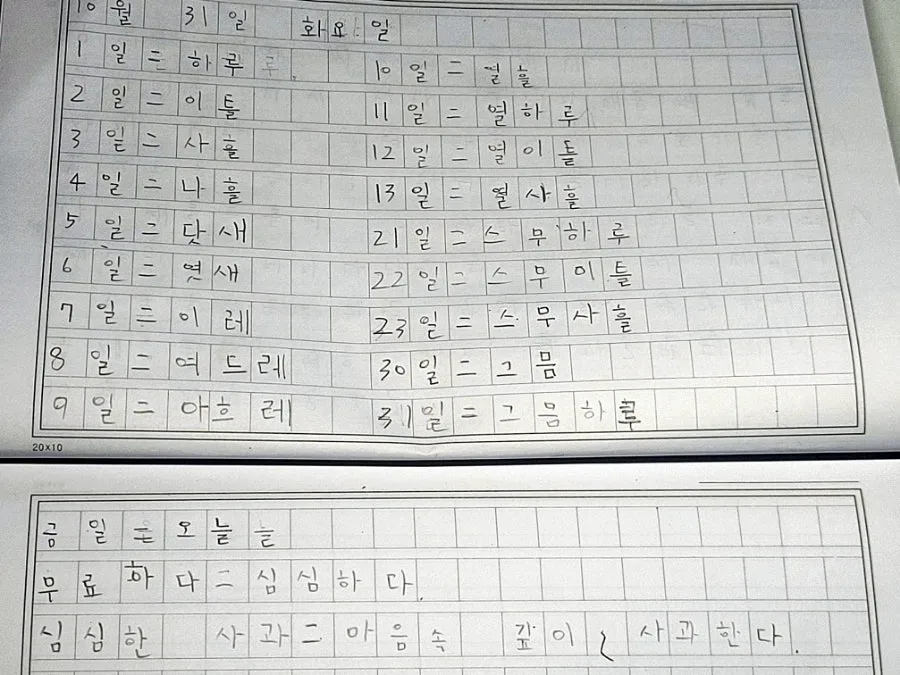 10월 31일 화요일
1일=하루루.
2일=이틀
3일=사흘
4일=나흘
5일=닷새
6일=엿새
7일=이레
8일=여드레
9일=아흐레
10일=열흘
11일=열하루
12일=열이틀
13일=열사흘
21일=스무하루
22일=스무이틀
23일=스무사흘
30일=그믐
31일=그믐하루
20×10
금일=오늘늘
무료하다=심심하다.
심심한 사과=마음속 깊이 사과한다.